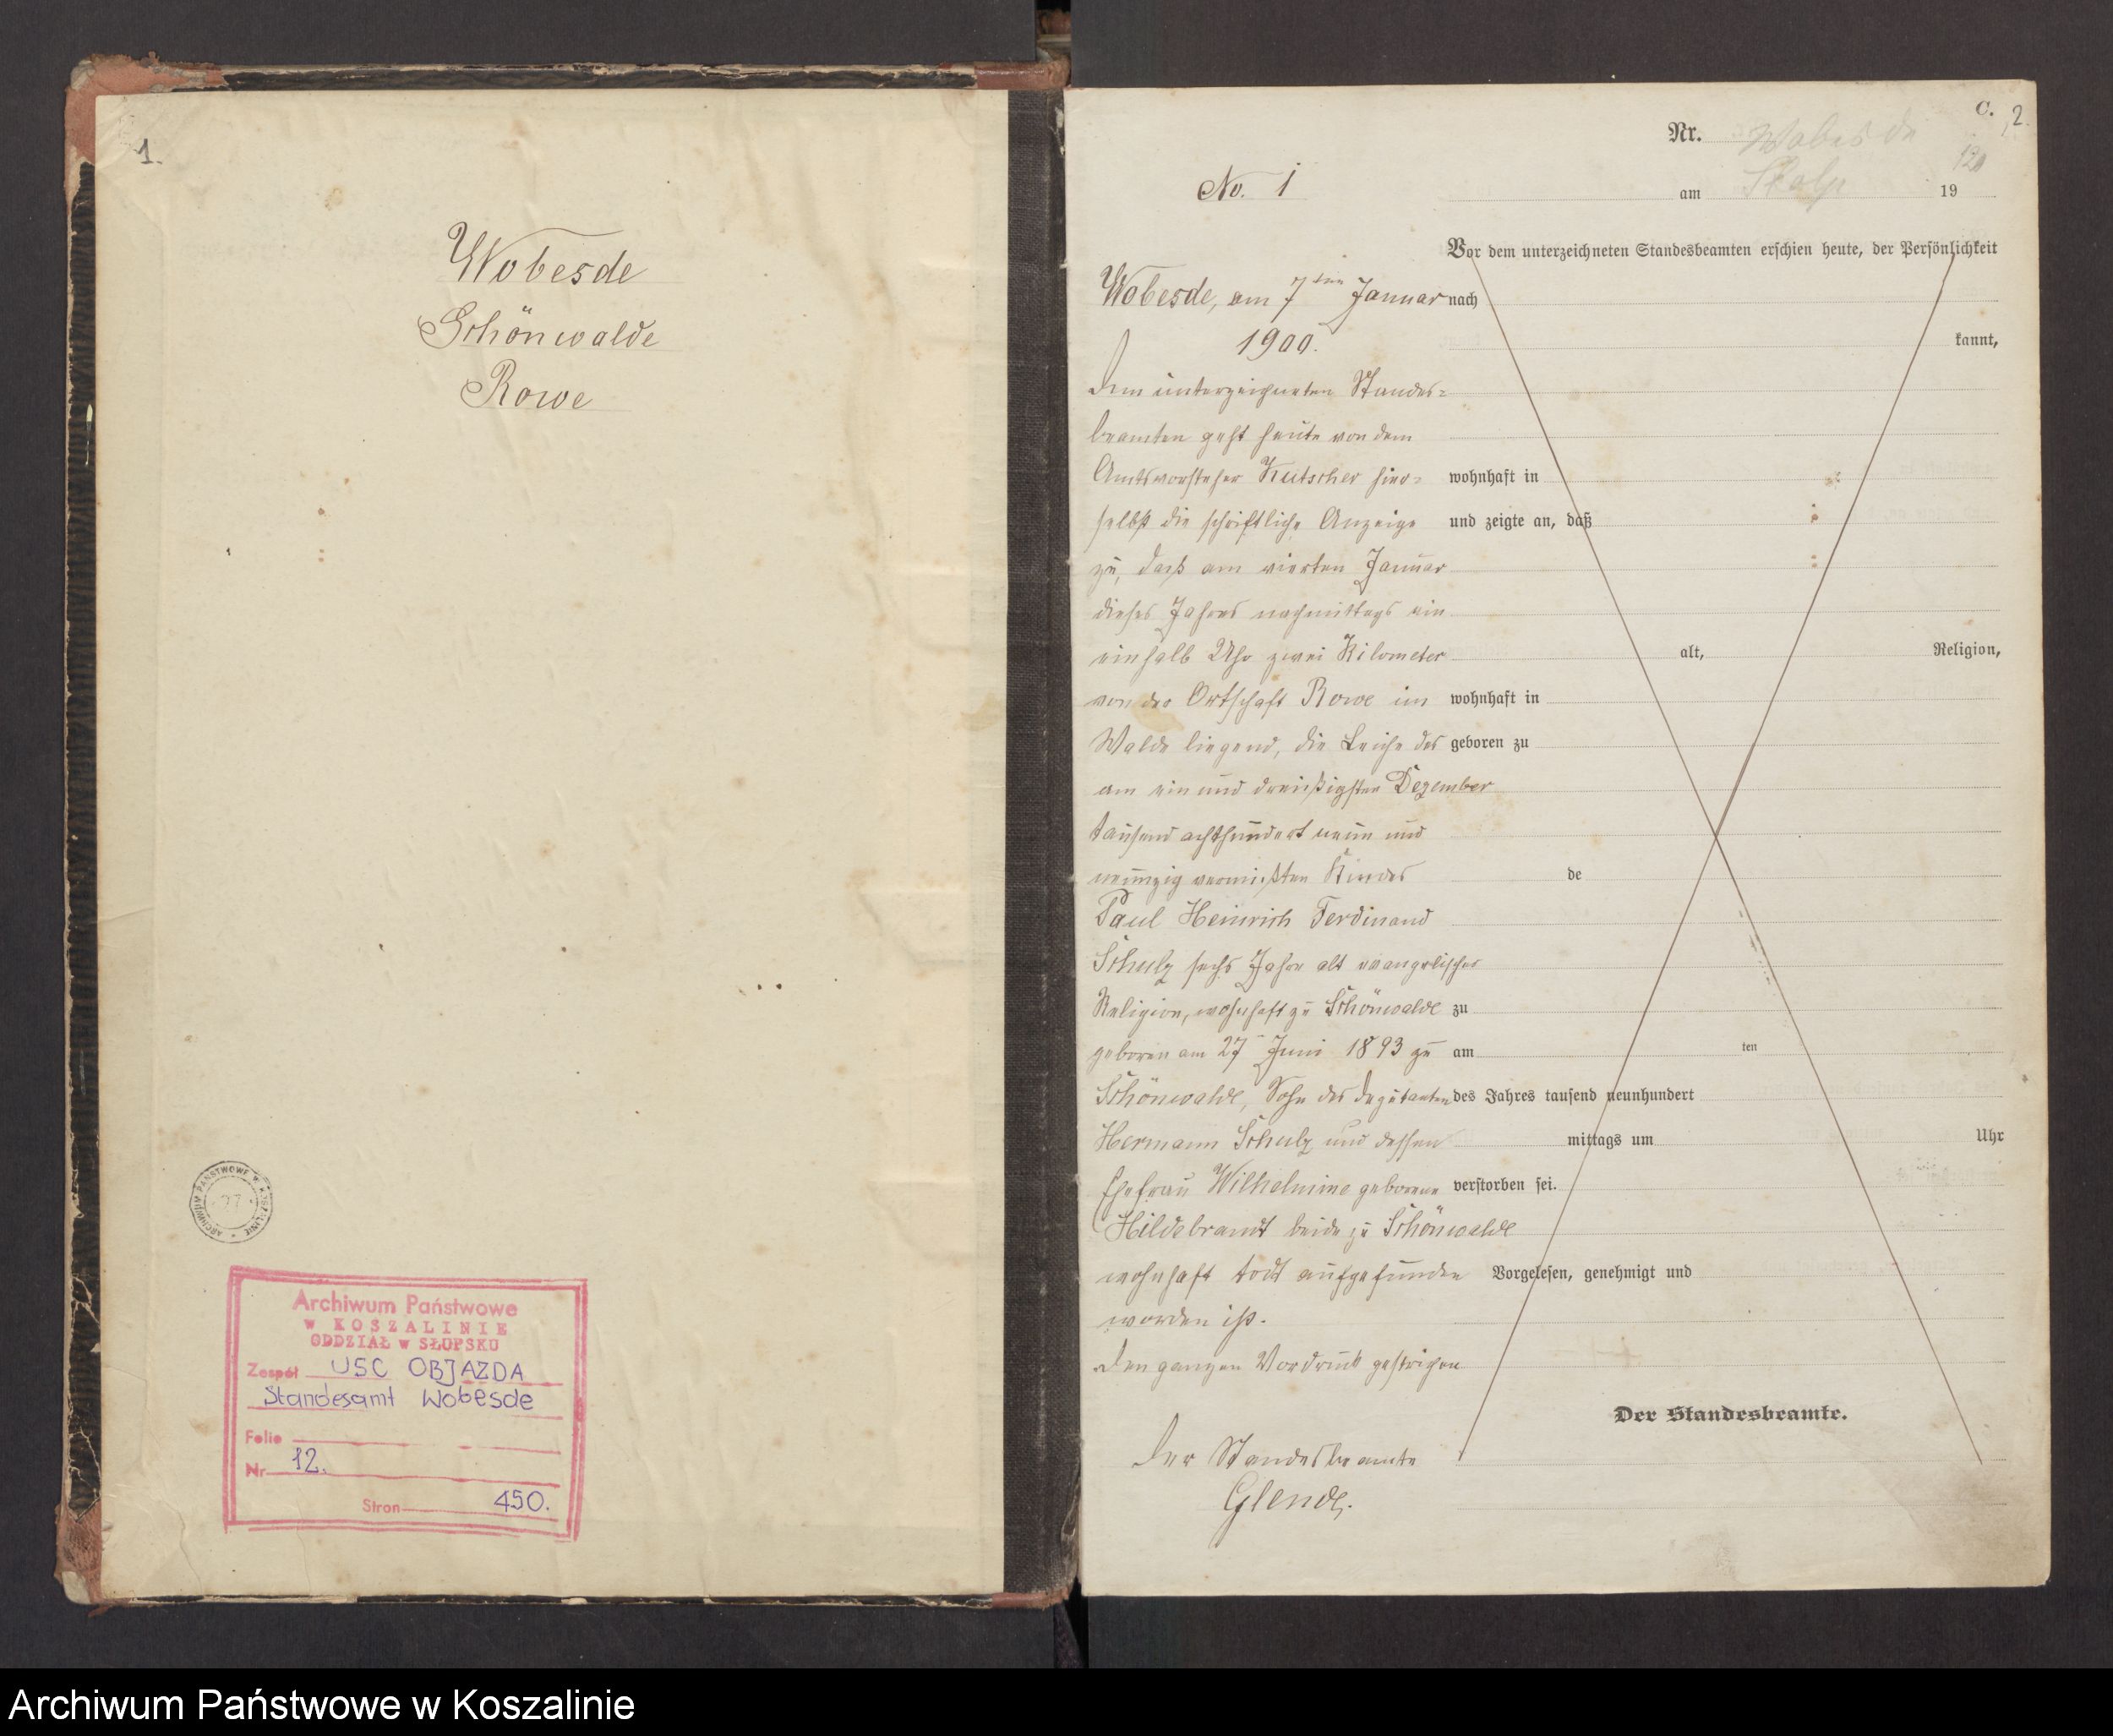 1.
Wobesde
Schönwalde
Rowe
ARCHIWUM PAŃSTWOWE W KOSZALINIE
27
Archiwum Państwowe
w KOSZALINIE
ODDZIAŁ w SŁUPSKU
Zespół USC OBJAZDA
Standesamt Wobesde
Folio
Nr 12.
Stron 450.
C.
2.
Nr. Wobesde
Stolp
120
No. 1
am 19
Vor dem unterzeichneten Standesbeamten erschien heute, der Persönlichkeit
Wobesde, am 7ten Januar
1900.
nach
kannt,
Dem unterzeichneten Standes=
beamten geht heute von dem
Amtsvorsteher Kutscher hier=
selbst die schriftliche Anzeige
zu, daß am vierten Januar
dieses Jahres nachmittags ein
einhalb Uhr zwei Kilometer
von der Ortschaft Rowe im
Walde liegend, die Leiche des
am ein und dreißigsten Dezember
tausend achthundert neun und
neunzig vermißten Kindes
Paul Heinrich Ferdinand
Schulz sechs Jahre alt evangelischer
Religion, wohnhaft zu Schönwalde
geboren am 27ten Juni 1893 zu
Schönwalde, Sohn des Deputanten
Hermann Schulz und dessen
Ehefrau Wilhelmine geborene
Hildebrandt beide zu Schönwalde
wohnhaft todt aufgefunden
worden ist.
Den ganzen Vordruck gestrichen
Der Standesbeamte
Glende.
wohnhaft in
und zeigte an, daß
alt, Religion,
wohnhaft in
geboren zu
de
zu
am ten
des Jahres tausend neunhundert
mittags um Uhr
verstorben sei.
Vorgelesen, genehmigt und
Der Standesbeamte.
Archiwum Państwowe w Koszalinie